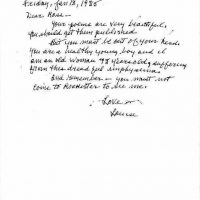 Friday, Jan 18, 1985
Dear Ross—
Your poems are very beautiful,
you should get them published.
But you must be out of your head.
You are a healthy young boy and I
am an old woman 98 years old, suffering
from this dreadful emphysema
And remember — you must not
come to Rochester to see me.
Love
Louise